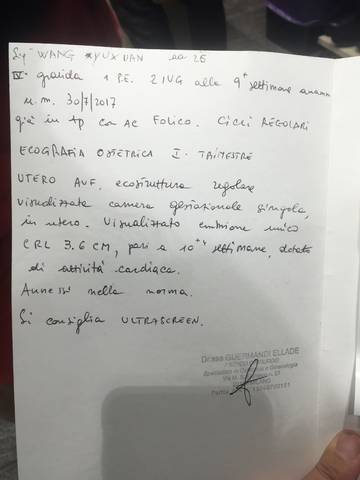 Sig WANG YUXUAN aa 25
IV- gravida 1 P.S. 2 IVG alla 9ª settimana anamn
u.m. 30/7/2017
già in tp con AC Folico. CICLI REGOLARI
ECOGRAFIA OSTETRICA I- TRIMESTRE
UTERO AVF. ecostruttura regolare
visualizzata camera gestazionale singola,
in utero. Visualizzato embrione unico
CRL 3.6 CM, pari a 10⁺⁴ settimane, dotato
di attività cardiaca.
Annessi nella norma.
Si consiglia ULTRASCREEN.
Dr.ssa GUERMANDI ELLADE
Specialista in Ostetricia e Ginecologia
MILANO